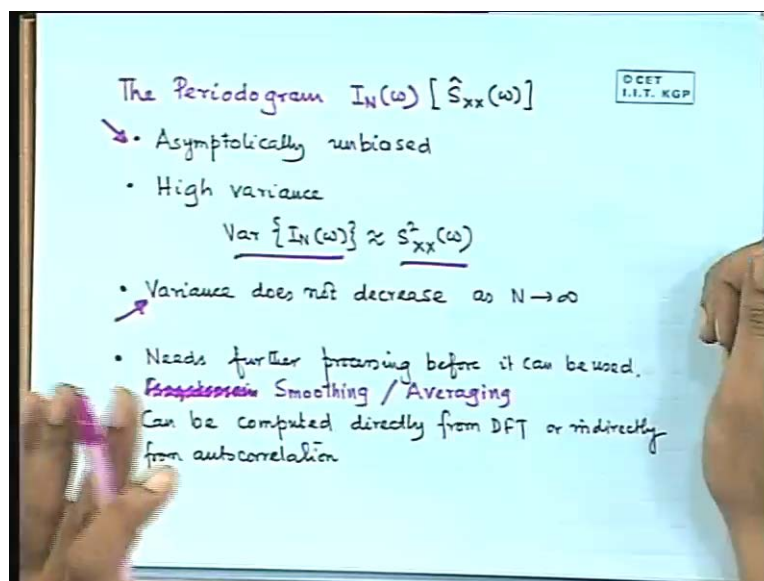 The Periodogram I_N(ω) [Ŝ_xx(ω)]
D CET
I.I.T. KGP
• Asymptotically unbiased
• High variance
Var {I_N(ω)} ≈ S²_xx(ω)
• Variance does not decrease as N → ∞
• Needs further processing before it can be used.
Smoothing / Averaging
Can be computed directly from DFT or indirectly
from autocorrelation